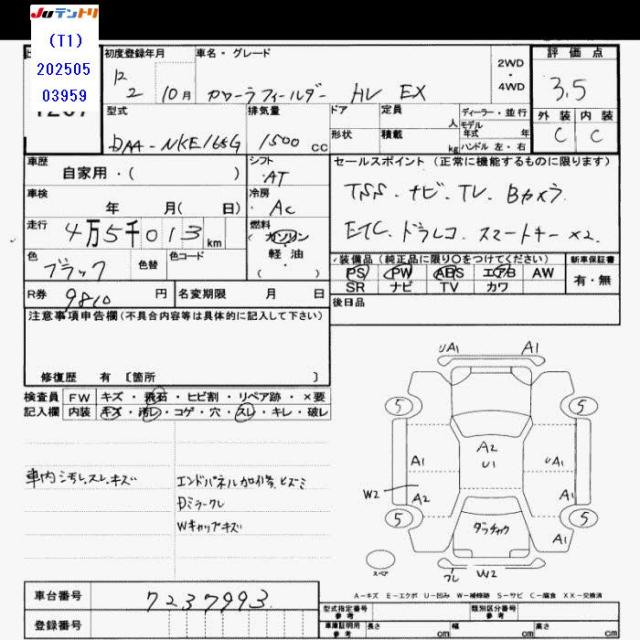 JUテントリ
(T1)
202505
03959
初度登録年月
車名・グレード
2WD
・
4WD
評価点
10月
カローラフィールダー HV EX
3.5
型式
排気量
ドア
形状
定員
人
積載
kg
ディーラー・並行
モデル
年式 年
ハンドル 左・右
外装 内装
C C
DAA-NKE165G
1500 cc
車歴
自家用・( )
シフト
AT
セールスポイント(正常に機能するものに限ります)
TSS.ナビ.TV.Bカメラ
車検
年 月( 日)
冷房
AC
ETC.ドラレコ.スマートキー×2.
走行
4万5千013km
燃料
ガソリン
軽油
・
色
ブラック
色替
色コード
装備品(純正品に限り○をつけてください)
新車保証書
PS PW ABS エアB AW
SR ナビ TV カワ
有・無
R券
9810円
名変期限 月 日
後日品
注意事項申告欄(不具合内容等は具体的に記入して下さい)
修復歴 有 〔箇所 〕
検査員 FW キズ・飛石・ヒビ割・リペア跡・×要
記入欄 内装 キズ・汚レ・コゲ・穴・スレ・キレ・破レ
車内シ汚レ.スレ.キズ
エンドパネル加修.ヒズミ
Dミラークレ
Wキャップキズ
UA1 A1
5 5
A2
U1
A1 UA1
W2 A2 A1
5 5
ダッチャク
A1
スペア
W2
A-キズ E-エクボ U-凹み W-補修跡 S-サビ C-腐食 XX-交換済
車台番号
7237993
登録番号
型式指定番号
参考
類別区分番号
参考
車庫証明用
参考
長さ cm 幅 cm 高さ cm